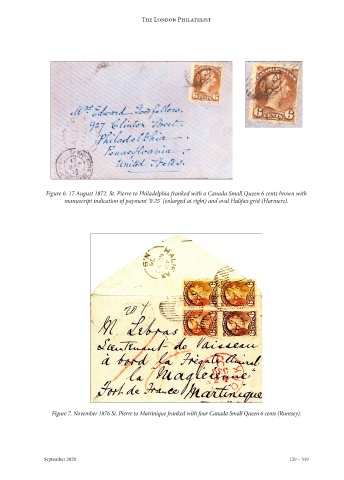 THE LONDON PHILATELIST
Mrs Edward Goodfellow.
927 Clinton Street.
Philadelphia.
Pennsylvania.
United States.
6 CENTS 6
6 CENTS 6
Figure 6. 17 August 1873. St. Pierre to Philadelphia franked with a Canada Small Queen 6 cents brown with
manuscript indication of payment '0.25' (enlarged at right) and oval Halifax grid (Harmers).
HALIFAX
M. Lebras
Lieutenant de Vaisseau
à bord la Frégate Amiral
la "Magicienne"
Fort de France Martinique
Figure 7. November 1876 St. Pierre to Martinique franked with four Canada Small Queen 6 cents (Rumsey).
September 2020
129 – 349